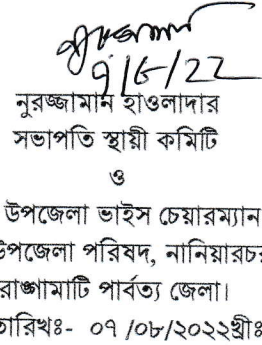 নুরজ্জামান হাওলাদার
সভাপতি স্থায়ী কমিটি
ও
উপজেলা ভাইস চেয়ারম্যান
উপজেলা পরিষদ, নানিয়ারচর
রাঙ্গামাটি পার্বত্য জেলা।
তারিখঃ- ০৭ /০৮/২০২২খ্রীঃ